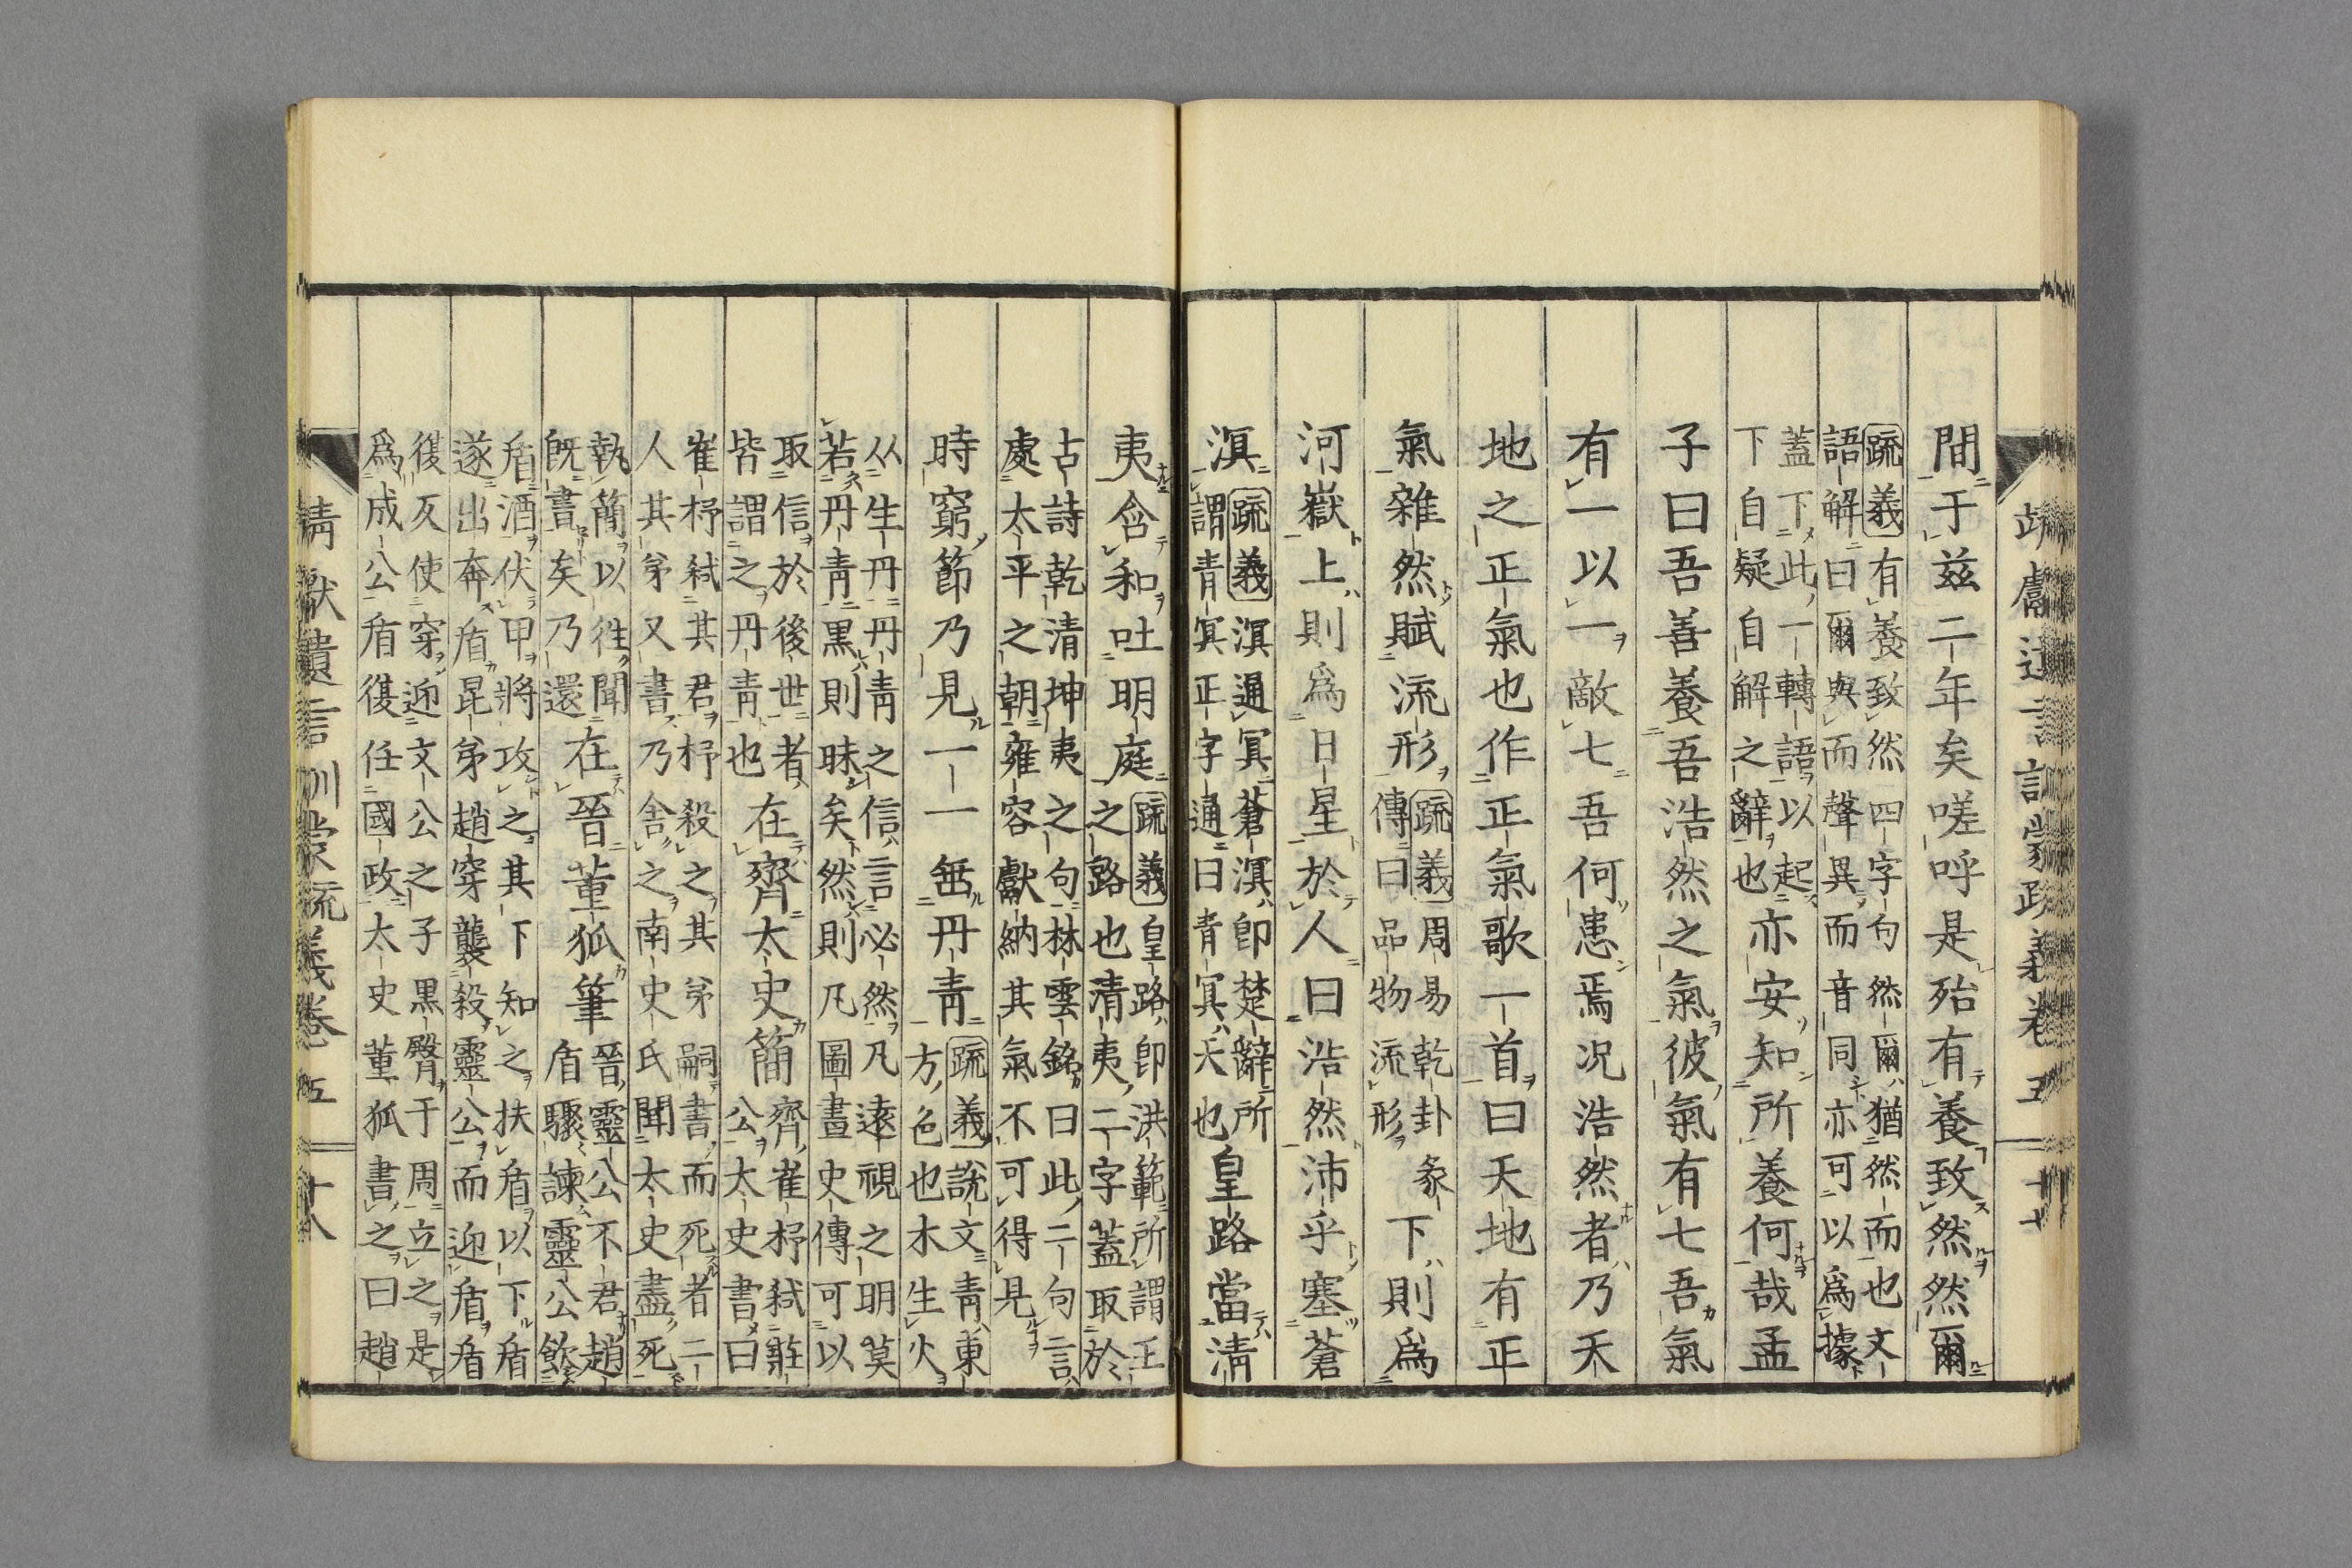 靖獻遺言訓蒙疏義卷五 十七
間于茲二年矣嗟呼是殆有養致然然爾
疏義有養致然四字句然爾猶然而也文
語解曰爾與而聲異而音同亦可以爲據
蓋下此一轉語以起
下自疑自解之辭也亦安知所養何哉孟
子曰吾善養吾浩然之氣彼氣有七吾氣
有一以一敵七吾何患焉况浩然者乃天
地之正氣也作正氣歌一首曰天地有正
氣雜然賦流形疏義周易乾卦彖
傳曰品物流形下則爲
河嶽上則爲日星於人曰浩然沛乎塞蒼
溟疏義溟通冥蒼溟即楚辭所
謂青冥正字通曰青冥天也皇路當淸
夷含和吐明庭疏義皇路即洪範所謂王
之路也清夷二字蓋取於
古詩乾清坤夷之句林雲銘曰此二句言
處太平之朝雍容獻納其氣不可得見
時窮節乃見一一垂丹青疏義說文青東
方色也木生火
从生丹丹青之信言必然凡遠視之明莫
若丹青黑則昧矣然則凡圖畫史傳可以
取信於後世者
皆謂之丹青也在齊太史簡齊崔杼弑莊
公太史書曰
崔杼弑其君杼殺之其弟嗣書而死者二
人其弟又書乃舍之南史氏聞太史盡死
執簡以徃聞
旣書矣乃還在晉董狐筆晉靈公不君趙
盾驟諫靈公飮
盾酒伏甲將攻之其下知之扶盾以下盾
遂出奔盾昆弟趙穿襲殺靈公而迎盾盾
復反使穿迎文公之子黑臀于周立之是
爲成公盾復任國政太史董狐書之曰趙
靖獻遺言訓蒙疏義卷五 十八